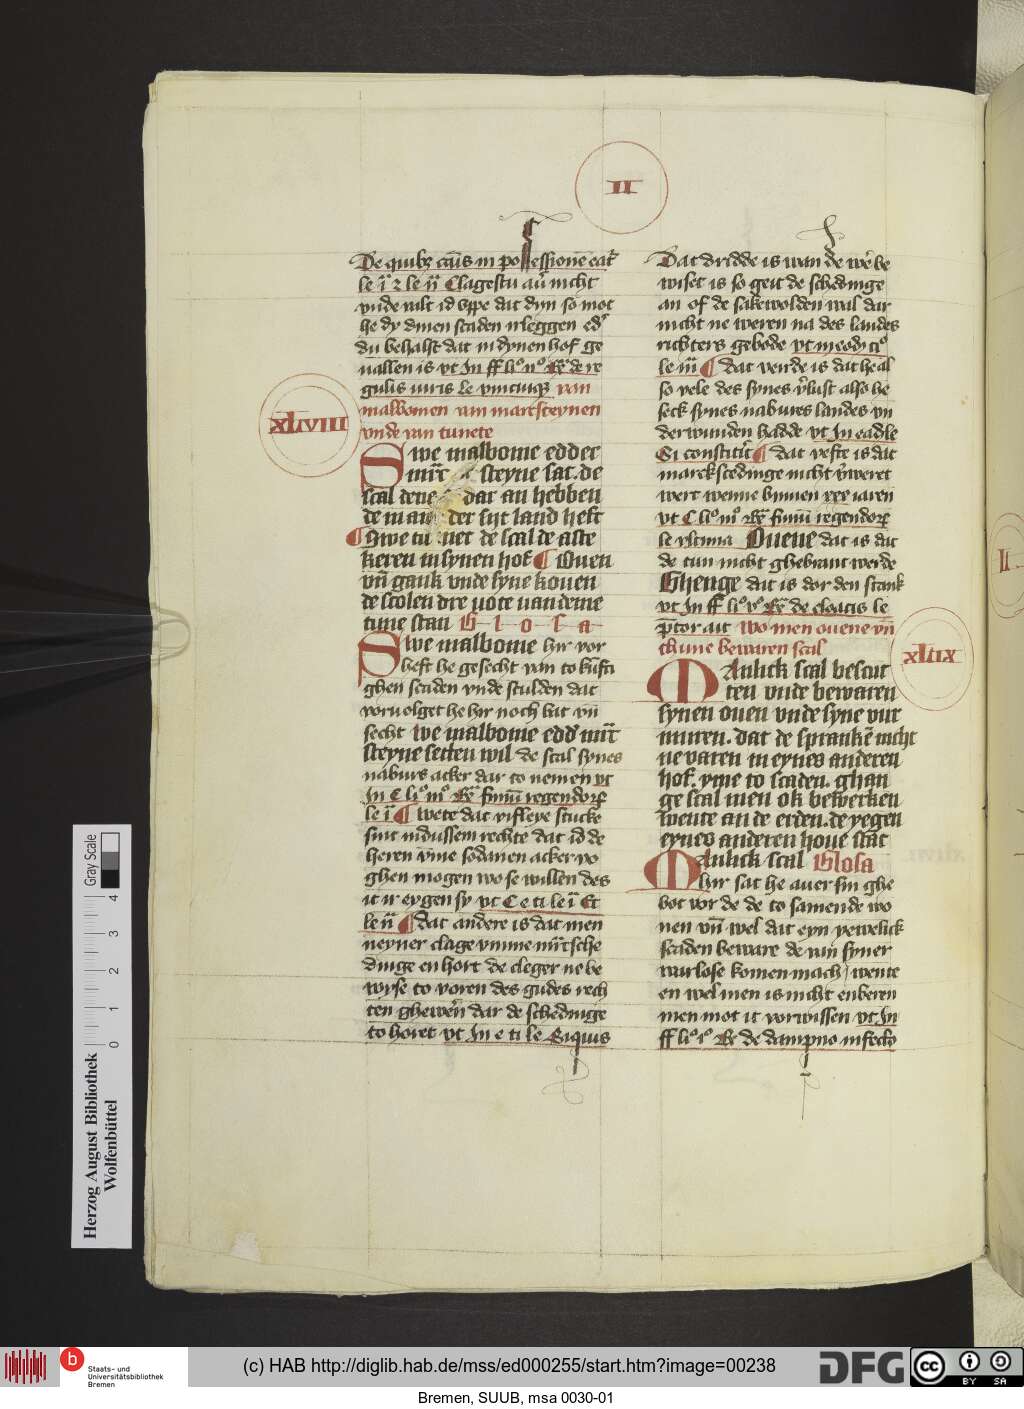 II
De quibz cāus in possessionē eāt
le ī 2 le ij Clagestu aū nicht
vnde wilt id vppe dat dyn so mot
he dy dinen scaden nleggen ed'
du behalst dat in dynen hof ge
uallen is vt In ff li° ii° Re de re
gulis iuris le vnicuiqz van
malbomen van marcsteynen
vnde van tunete
XLVIII
Swe malbome edder
steyne sat. de
scal dar an hebben
de der syt land heft
Swe tunet de scal de aste
keren in synen hof Ouen
vn̄ gank vnde syne kouen
de scolen dre uote uan deme
tune stan Glosa
Swe malbome hir vor
heft he gesecht van to kufti
ghen scaden vnde sculden dat
vorvolget he hir noch bat vn̄
secht we malbome edd' mr̄
steyne setten wil de scal synes
naburs acker dar to nemen vt
In C li° iii° Re finiū regendorz
le ī wete dat viffleye stucke
sint in dussem rechte dat id de
heren vme sodanen acker vo
ghen mogen wo se willen des
it ir eygen sy vt C e ti le ī Et
le ij dat andere is dat men
neyner clage vmme mr̄tsche
dinge en hort de cleger ne be
wyse to voren des gudes rech
ten ghewer̄n dar de schedinge
to horet vt In e ti le Siquis
Dat dridde is wan de we' be
wiset is so geit de schedinge
an of de sakewolden wil dar
nicht ne weren na des landes
richters gebode vt in eod ti°
le iii dat verde is dat he al
so vele des synes v'lust also he
seck synes nabures landes vn
derwunden hadde vt In ead le
Si constitit dat vefte is dat
marckscedinge nicht v'weret
wert wenne bynnen xxx iaren
vt C li° iii° Re finiū regendorz
le vltima Ouene dat is dat
de tun nicht ghebrant werde
Ghenge dat is dor den stank
vt In ff li° v° Re de cloacis le
p̄tor ait Wo men ouene vn̄
thune bewaren scal
XLIX
Manlick scal bescut
ten vnde bewaren
synen ouen vnde syne vur
muren. dat de sprankē nicht
ne varen in eynes anderen
hof. yme to scaden. ghan
ge scal men ok bewerken
wente an de erden. de yegen
eynes anderen houe stat
Manlick scal Glosa
Hir sat he auer sin ghe
bot vor de de to samende wo
nen vn̄ wel dat eyn yewelick
scaden beware de van syner
warlose komen mach wente
en wel men is nicht enberen
men mot it vorwissen vt In
ff li° i° Re de dampno infecto
Gray Scale
0 1 2 3 4
Herzog August Bibliothek
Wolfenbüttel
b
Staats- und
Universitätsbibliothek
Bremen
(c) HAB http://diglib.hab.de/mss/ed000255/start.htm?image=00238
DFG
cc
BY SA
Bremen, SUUB, msa 0030-01